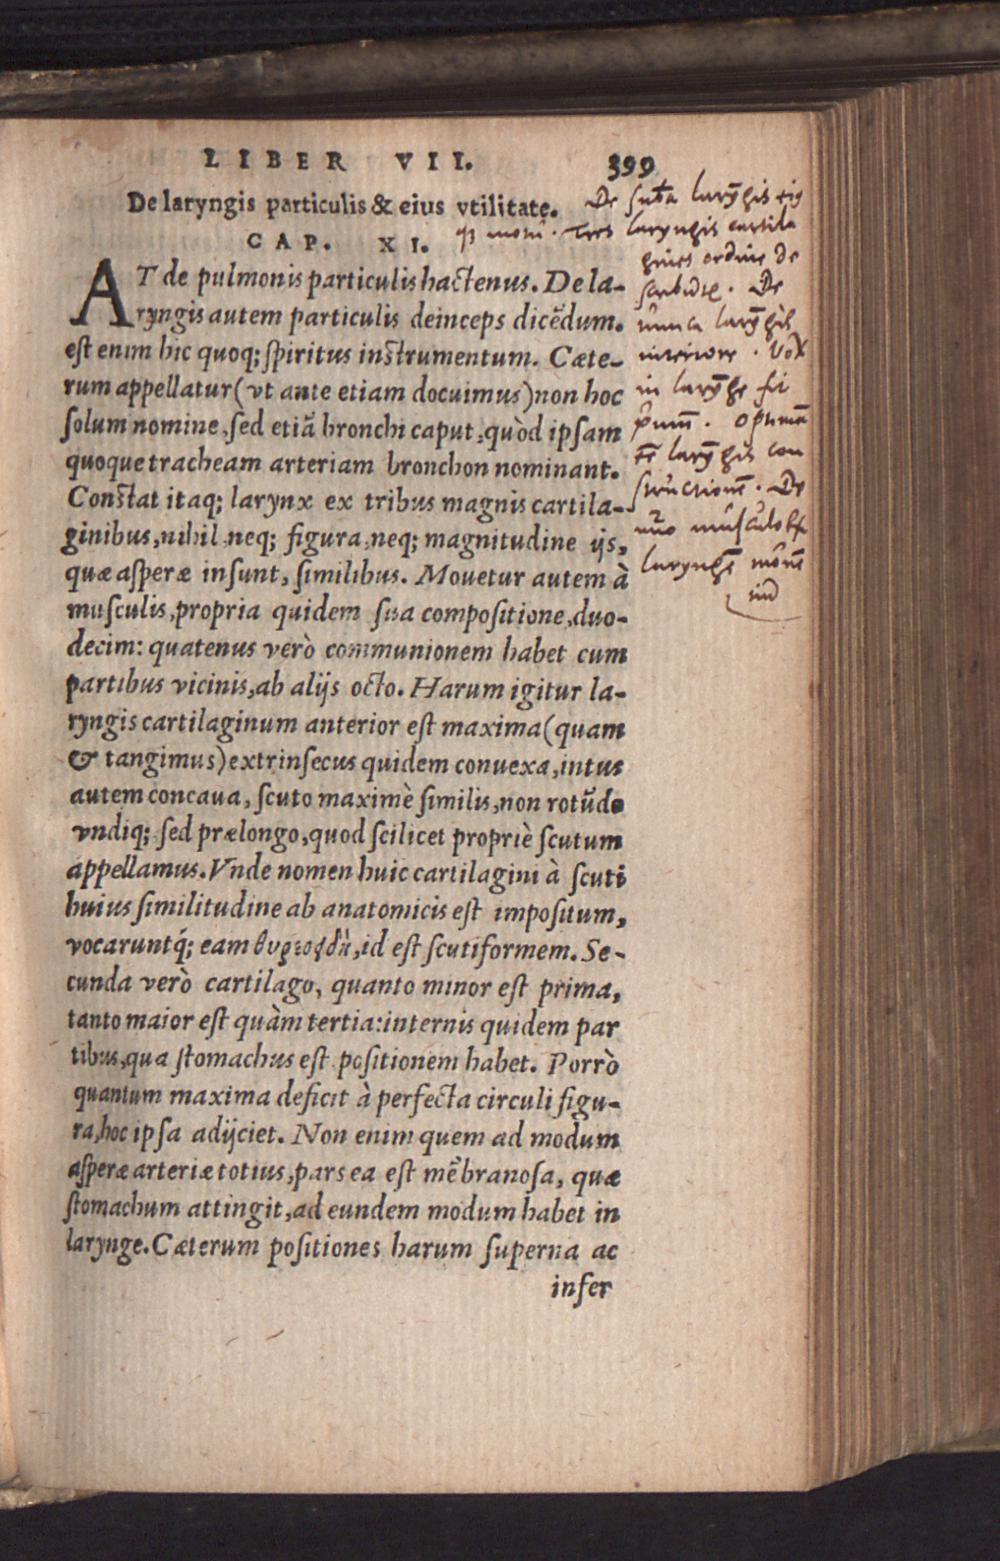 LIBER VII. 399
De laryngis particulis & eius vtilitate.
CAP. XI.
AT de pulmonis particulis hactenus. De la-
ryngis autem particulis deinceps dicēdum.
est enim hic quoq; spiritus instrumentum. Cæte-
rum appellatur (vt ante etiam docuimus) non hoc
solum nomine, sed etiā bronchi caput, quòd ipsam
quoque tracheam arteriam bronchon nominant.
Constat itaq; larynx ex tribus magnis cartila-
ginibus, nihil neq; figura, neq; magnitudine ijs,
quæ asperæ insunt, similibus. Mouetur autem à
musculis, propria quidem sua compositione, duo-
decim: quatenus verò communionem habet cum
partibus vicinis, ab alijs octo. Harum igitur la-
ryngis cartilaginum anterior est maxima (quam
& tangimus) extrinsecus quidem conuexa, intus
autem concaua, scuto maximè similis, non rotūdo
vndiq; sed prælongo, quod scilicet propriè scutum
appellamus. Vnde nomen huic cartilagini à scuti
huius similitudine ab anatomicis est impositum,
vocaruntq́; eam θυρεοειδῆ, id est scutiformem. Se-
cunda verò cartilago, quanto minor est prima,
tanto maior est quàm tertia: internis quidem par
tibus, qua stomachus est positionem habet. Porrò
quantum maxima deficit à perfecta circuli figu-
ra, hoc ipsa adijciet. Non enim quem ad modum
asperæ arteriæ totius, pars ea est mēbranosa, quæ
stomachum attingit, ad eundem modum habet in
larynge. Cæterum positiones harum superna ac
infer
De laryn̄gis
Tres laryngis cartila
gines ordine de
De
laryn̄gis
interiore . Vox
in laryn̄ge
laryn̄gis con
structionē . De